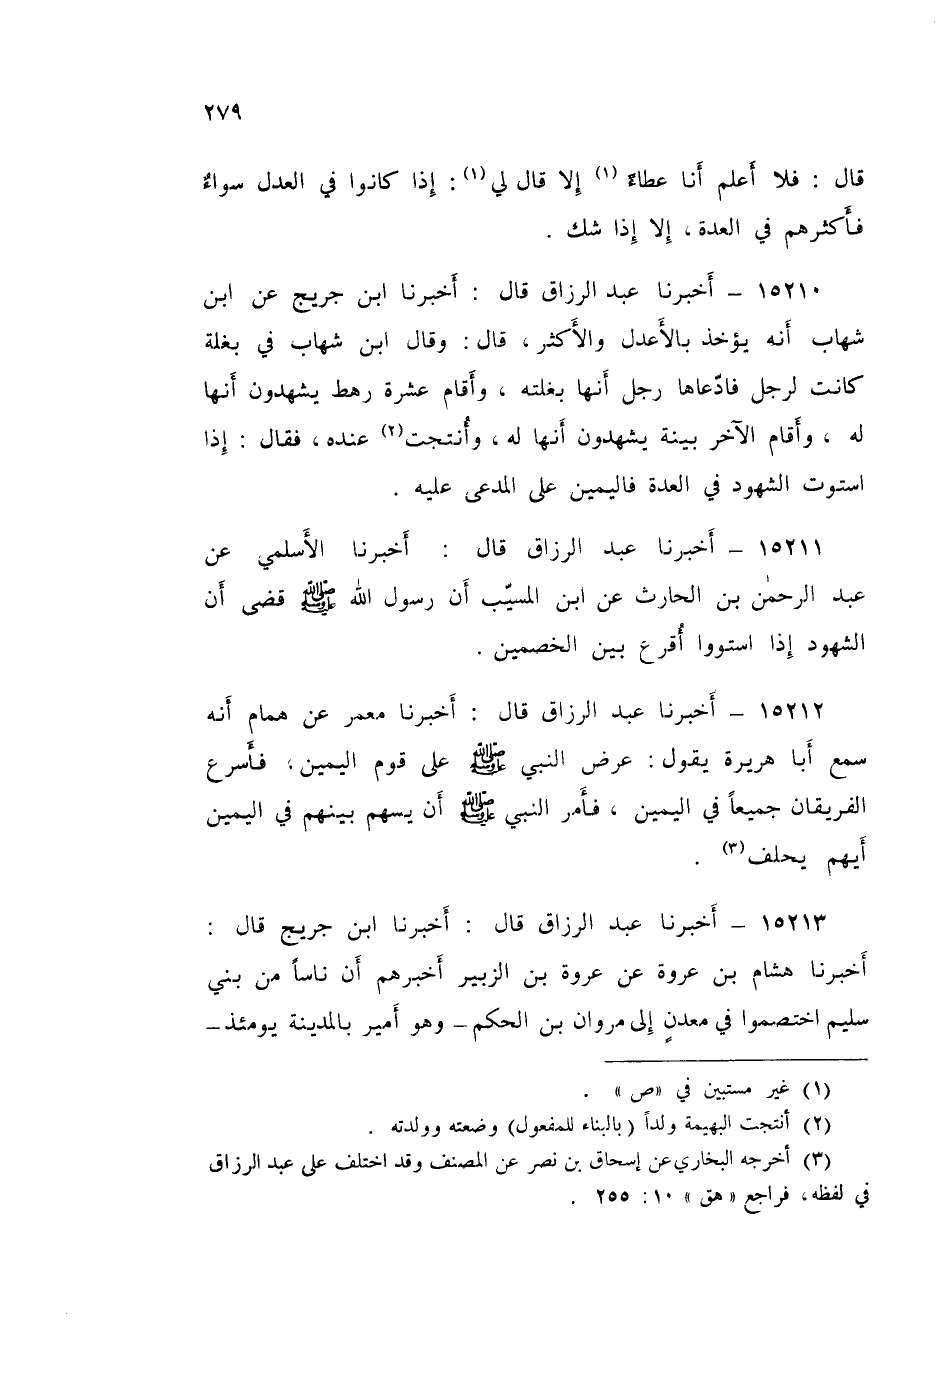 ٢٧٩
قال : فلا أَعلم أَنا عطاءً (١) إلا قال لي (١) : إِذا كانوا في العدل سواءٌ
فأَكثرهم في العدة ، إِلا إِذا شك .
١٥٢١٠ – أَخبرنا عبد الرزاق قال : أَخبرنا ابن جريج عن ابن
شهاب أَنه يؤخذ بالأَعدل والأَكثر ، قال : وقال ابن شهاب في بغلة
كانت لرجل فادّعاها رجل أَنها بغلته ، وأَقام عشرة رهط يشهدون أَنها
له ، وأَقام الآخر بينة يشهدون أَنها له ، وأُنتجت (٢) عنده ، فقال : إِذا
استوت الشهود في العدة فاليمين على المدعى عليه .
١٥٢١١ – أَخبرنا عبد الرزاق قال : أَخبرنا الأَسلمي عن
عبد الرحمٰن بن الحارث عن ابن المسيّب أَن رسول الله ﷺ قضى أَن
الشهود إِذا استووا أُقرع بين الخصمين .
١٥٢١٢ – أَخبرنا عبد الرزاق قال : أَخبرنا معمر عن همام أَنه
سمع أَبا هريرة يقول : عرض النبي ﷺ على قوم اليمين ، فأَسرع
الفريقان جميعاً في اليمين ، فأَمر النبي ﷺ أَن يسهم بينهم في اليمين
أَيهم يحلف (٣) .
١٥٢١٣ – أَخبرنا عبد الرزاق قال : أَخبرنا ابن جريج قال :
أَخبرنا هشام بن عروة عن عروة بن الزبير أَخبرهم أَن ناساً من بني
سليم اختصموا في معدنٍ إِلى مروان بن الحكم – وهو أَمير بالمدينة يومئذ –
(١) غير مستبين في «ص» .
(٢) أنتجت البهيمة ولداً (بالبناء للمفعول) وضعته وولدته .
(٣) أخرجه البخاري عن إسحاق بن نصر عن المصنف وقد اختلف على عبد الرزاق
في لفظه ، فراجع «هق» ١٠ : ٢٥٥ .